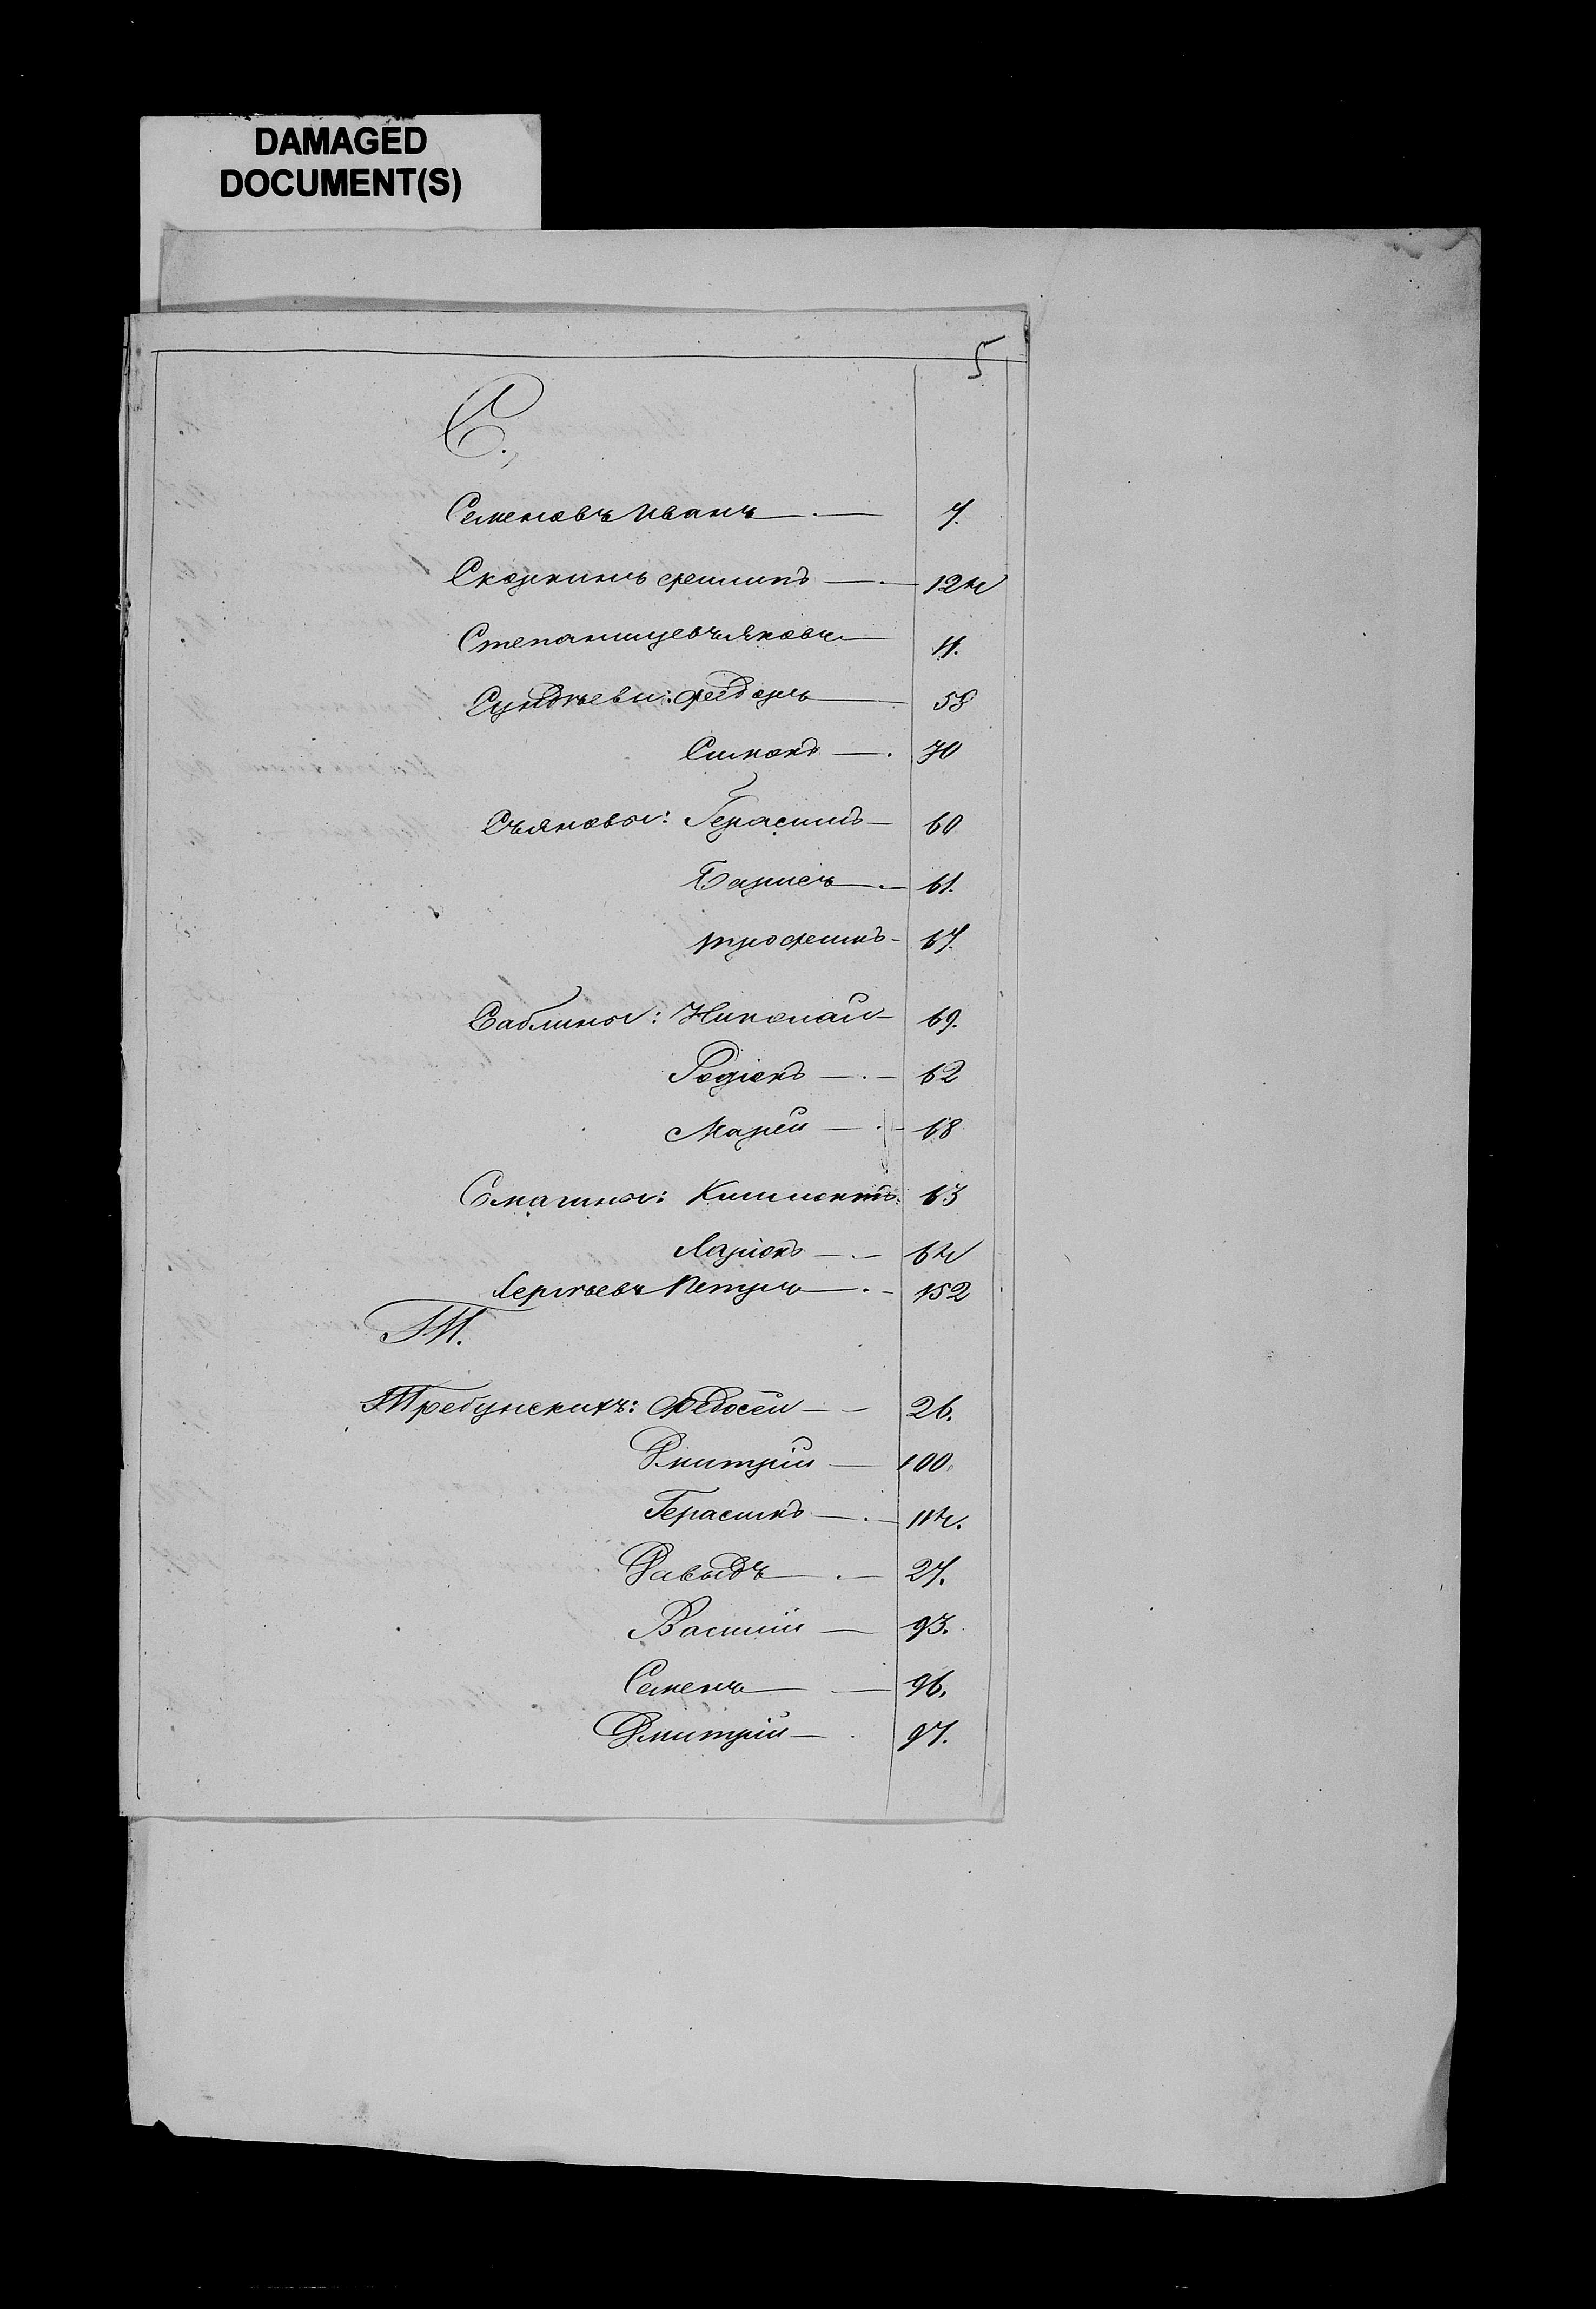 DAMAGED
DOCUMENT(S)
5
С.
Семеновъ Иванъ 7.
Скоркинъ Филипъ 124
Степанищевъ Яковъ 11.
Сундѣевы: Федоръ 58
Симонъ 70
Съяновы: Герасимъ 60
Борисъ 61.
Трофимъ 67.
Саблины: Николай 69.
Родіонъ 62
Марей 68
Смагины: Климонтъ 63
Ларіонъ 64
Сергѣевъ Петръ 152
Т.
Требунскихъ: Федосѣй 26.
Дмитрій 100.
Герасимъ 114.
Давыдъ 27.
Василій 93.
Семенъ 96.
Дмитрій 97.